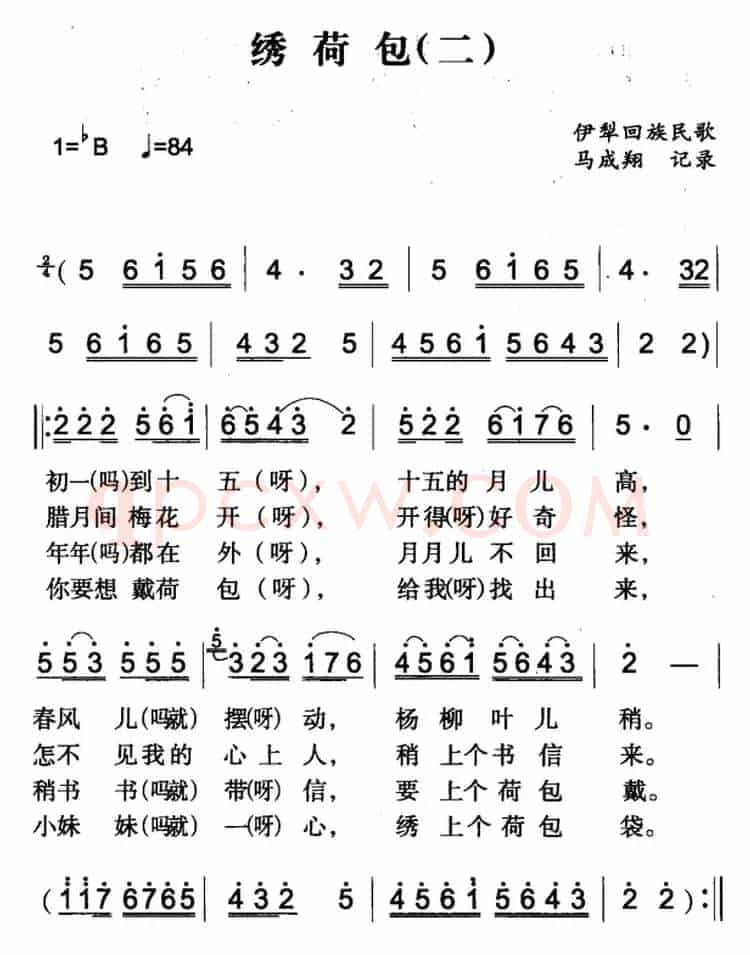 绣荷包(二)
1=♭B ♩=84
伊犁回族民歌
马成翔 记录
2/4 ( 5 6 i 5 6 | 4 · 3 2 | 5 6 i 6 5 | 4 · 3 2
5 6 i 6 5 | 4 3 2 5 | 4 5 6 i 5 6 4 3 | 2 2 )
‖: 2 2 2 5 6 i | 6 5 4 3 2 | 5 2 2 6 i 7 6 | 5 · 0
初一(吗)到十 五(呀), 十五的 月 儿 高,
腊月间 梅花 开(呀), 开得(呀)好 奇 怪,
年年(吗)都在 外(呀), 月月儿 不 回 来,
你要想 戴荷 包(呀), 给我(呀)找 出 来,
5 5 3 5 5 5 | 5 3 2 3 i 7 6 | 4 5 6 i 5 6 4 3 | 2 —
春风 儿(吗就) 摆(呀) 动, 杨 柳 叶 儿 稍。
怎不 见我的 心上人, 稍 上个 书 信 来。
稍书 书(吗就) 带(呀) 信, 要 上个 荷 包 戴。
小妹 妹(吗就) 一(呀) 心, 绣 上个 荷 包 袋。
( i i 7 6 7 6 5 | 4 3 2 5 | 4 5 6 i 5 6 4 3 | 2 2 ) :‖
qpcxw.COM